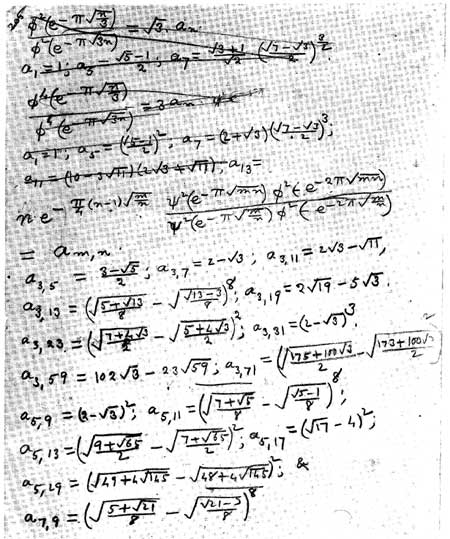 φ²(e^{-π√(n/3)}) / φ²(e^{-π√(3n)}) = √3 · a_n
a_1 = 1; a_5 = (√5-1)/2; a_7 = (√3+1)/√2 ((√7-√3)/2)^{3/2}
φ⁴(e^{-π√(n/3)}) / φ⁴(e^{-π√(3n)}) = 3 a_n
a_1 = 1; a_5 = ((√5-1)/2)²; a_7 = (2+√3)((√7-√3)/2)³;
a_11 = (10-3√11)(2√3+√11); a_13 =
n e^{-π/4 (n-1)√(m/n)} ψ²(e^{-π√(mn)}) φ²(-e^{-2π√(mn)}) / ψ²(e^{-π√(m/n)}) φ²(-e^{-2π√(m/n)})
= a_{m,n}.
a_{3,5} = (3-√5)/2; a_{3,7} = 2-√3; a_{3,11} = 2√3-√11,
a_{3,13} = (√((5+√13)/8) - √((√13-3)/8))⁸; a_{3,19} = 2√19 - 5√3.
a_{3,23} = (√((7+4√3)/2) - √((5+4√3)/2))²; a_{3,31} = (2-√3)³.
a_{3,59} = 102√3 - 23√59; a_{3,71} = (√((175+100√3)/2) - √((173+100√3)/2))²
a_{5,9} = (2-√3)²; a_{5,11} = (√((7+√5)/8) - √((√5-1)/8))⁸;
a_{5,13} = (√((9+√65)/2) - √((7+√65)/2))²; a_{5,17} = (√17 - 4)²;
a_{5,29} = (√(49+4√145) - √(48+4√145))²; &
a_{7,9} = (√((5+√21)/8) - √((√21-3)/8))⁸